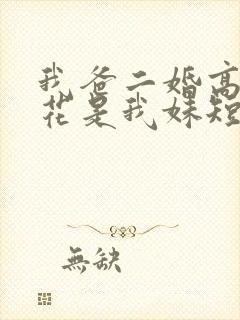 我爸二婚高
花是我妹短
無缺